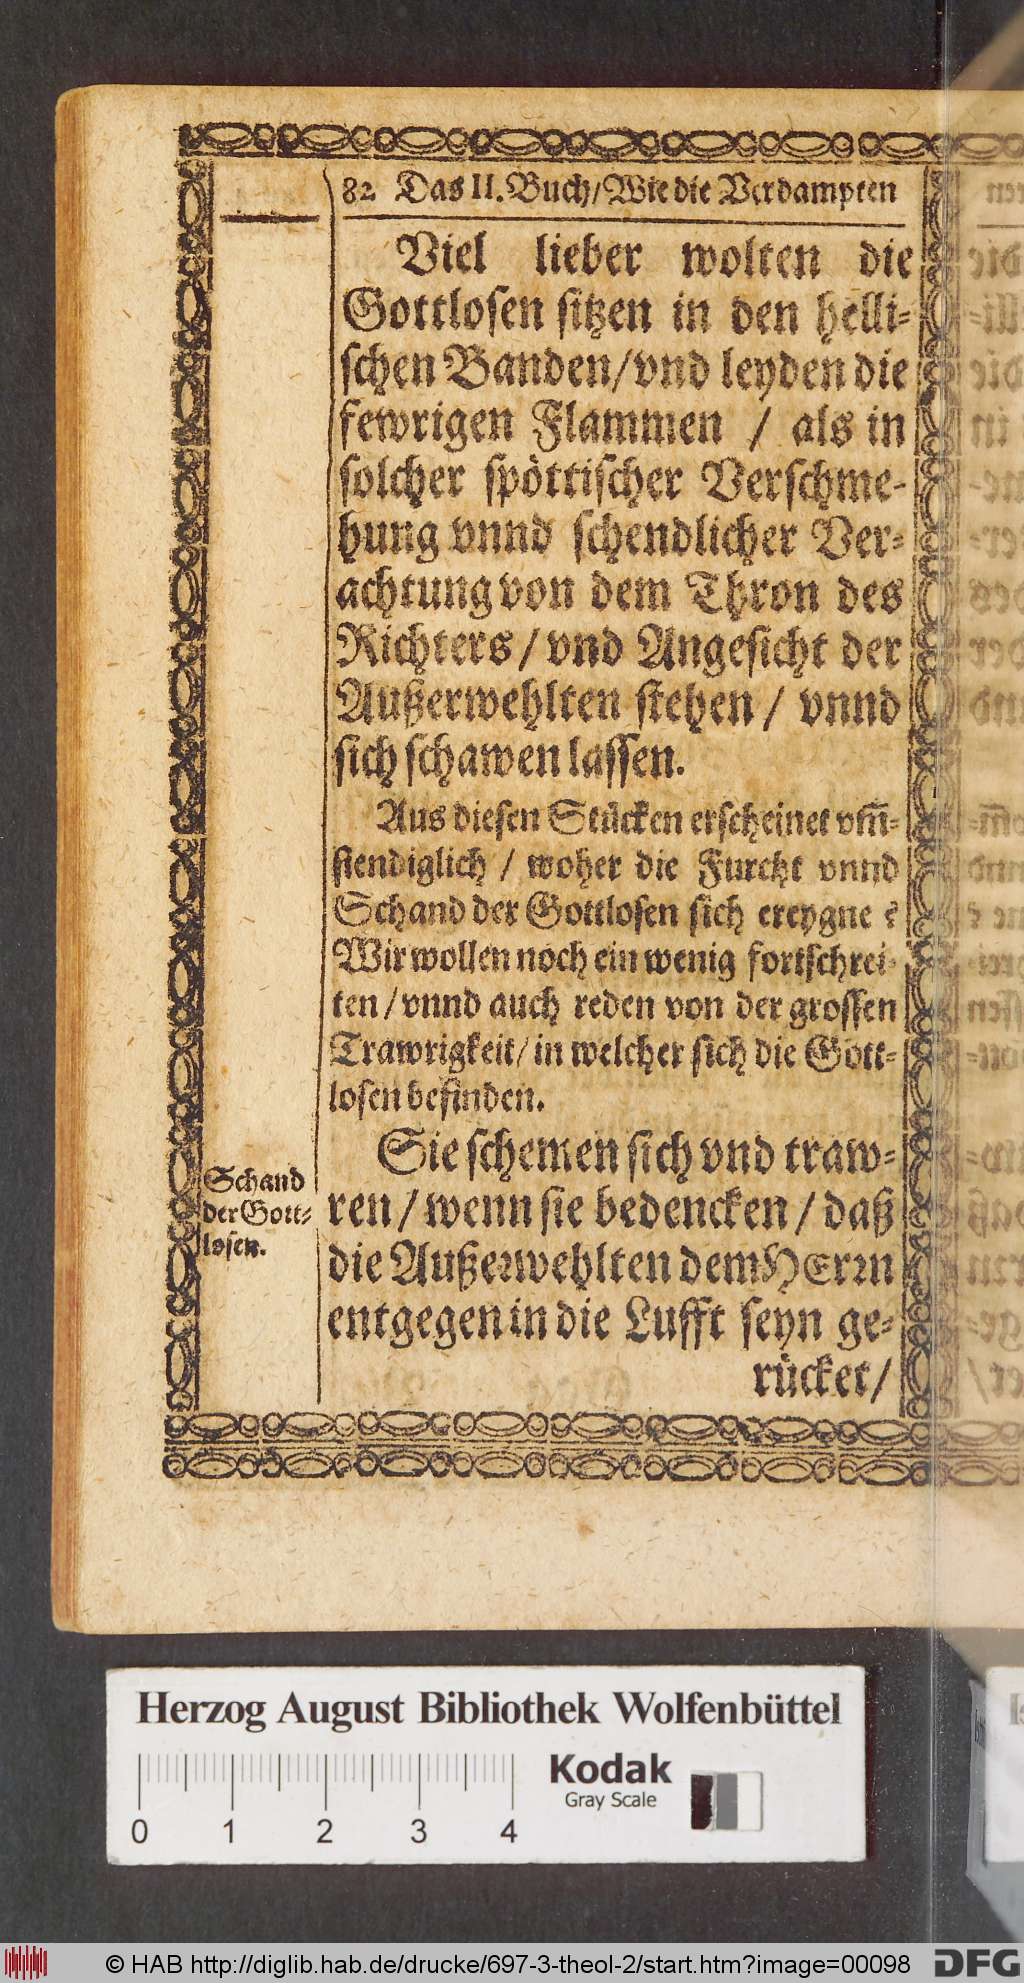 82 Das II. Buch/Wie die Verdampten
Viel lieber wolten die
Gottlosen sitzen in den helli-
schen Banden/vnd leyden die
fewrigen Flammen / als in
solcher spöttischer Verschme-
hung vnnd schendlicher Ver-
achtung von dem Thron des
Richters / vnd Angesicht der
Außerwehlten stehen / vnnd
sich schawen lassen.
Aus diesen Stücken erscheinet vm̄-
stendiglich / woher die Furcht vnnd
Schand der Gottlosen sich ereygne?
Wir wollen noch ein wenig fortschrei-
ten / vnnd auch reden von der grossen
Trawrigkeit/ in welcher sich die Gott-
losen befinden.
Schand
der Gott-
losen.
Sie schemen sich vnd traw-
ren / wenn sie bedencken / daß
die Außerwehlten dem HErrn
entgegen in die Lufft seyn ge-
rücket/
Herzog August Bibliothek Wolfenbüttel
0 1 2 3 4
Kodak
Gray Scale
© HAB http://diglib.hab.de/drucke/697-3-theol-2/start.htm?image=00098
DFG